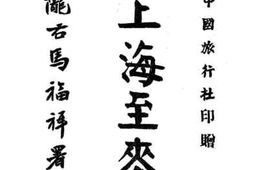 中國旅行社印贈
上海至來
隴右馬福祥署